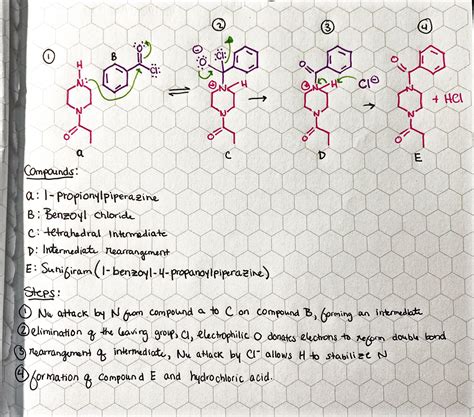 ① ② ③ ④
H
N:
B
:O:
Cl:
⊖
:O:
:Cl:
⊕
N
H
O
⊕
N
H
Cl⊖
O
N
+ HCl
N
O
N
O
N
O
N
O
a C D E
Compounds:
a: 1-propionylpiperazine
B: Benzoyl chloride
C: tetrahedral intermediate
D: Intermediate rearrangement
E: Sunifiram (1-benzoyl-4-propanoylpiperazine)
Steps:
① Nu attack by N from compound a to C on compound B, forming an intermediate
② elimination of the leaving group, Cl, electrophilic O donates electrons to reform double bond
③ rearrangement of intermediate, Nu attack by Cl⁻ allows H to stabilize N
④ formation of compound E and hydrochloric acid.